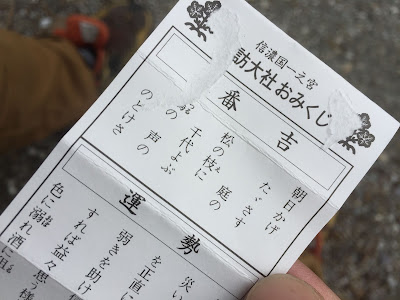 信濃国一之宮
訪大社おみくじ
番 吉
朝日かげ
たゞさす
庭の
松の枝に
千代よぶ
声の
のとけさ
運 勢
災い
を正直に
弱きを助け
すれば益々
思う様
色に溺れ酒